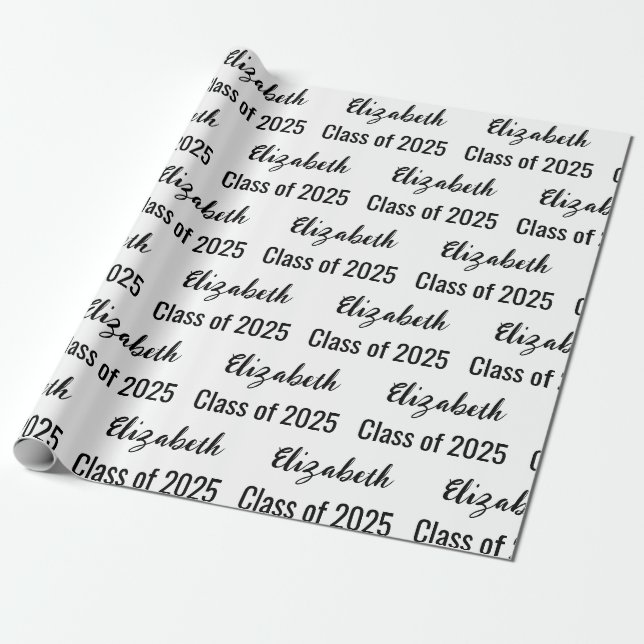 Elizabeth Elizabeth Elizabeth
Class of 2025 Class of 2025 Class of 2025 C
eth Elizabeth Elizabeth Elizabeth
2025 Class of 2025 Class of 2025 Class of 2
Elizabeth Elizabeth Elizabeth
Class of 2025 Class of 2025 Class of 2025 C
eth Elizabeth Elizabeth Elizabeth
2025 Class of 2025 Class of 2025 Class of 2
Elizabeth Elizabeth Elizabeth
Class of 2025 Class of 2025 Class of 2025 C
beth Elizabeth Elizabeth Elizabeth
2025 Class of 2025 Class of 2025 Class of 2